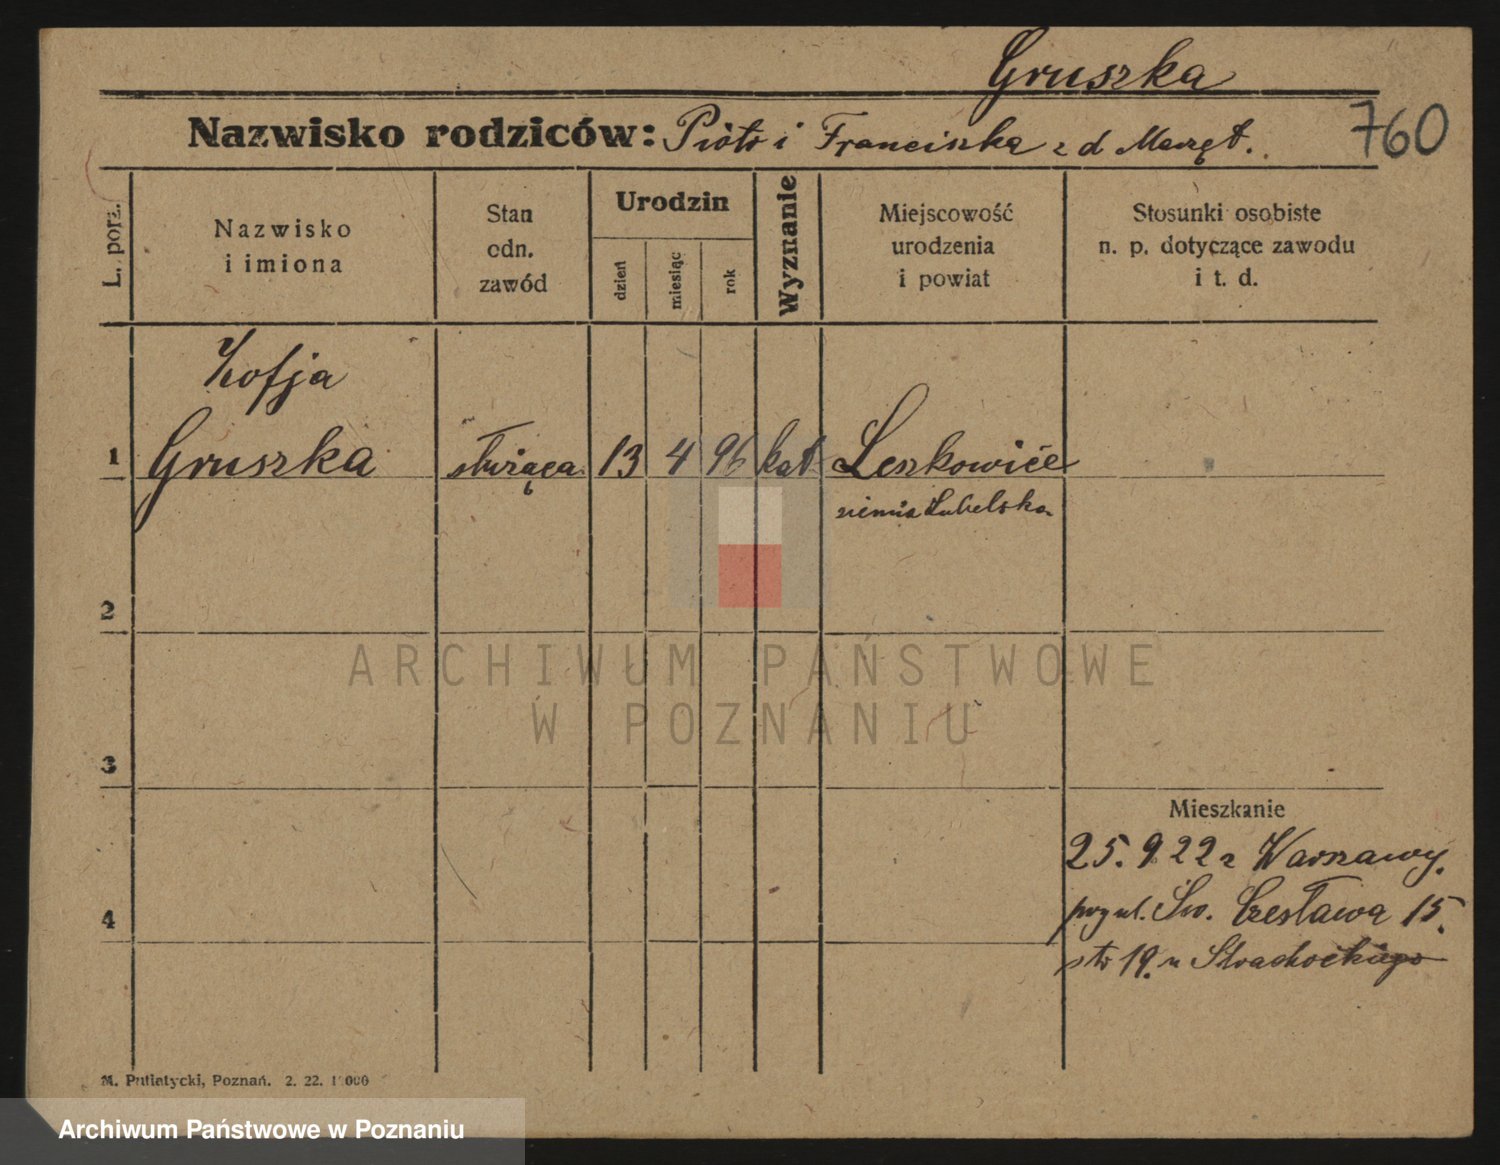 Gruszka
Nazwisko rodziców: Piotr i Franciszka z d
760
L. porz.
Nazwisko
i imiona
Stan
cdn.
zawód
Urodzin
dzień
miesiąc
rok
Wyznanie
Miejscowość
urodzenia
i powiat
Stosunki osobiste
n. p. dotyczące zawodu
i t. d.
Zofja
1 Gruszka służąca 13 4 96 kat Leszkowice
ziemia Lubelska
2
ARCHIWUM PAŃSTWOWE
W POZNANIU
3
Mieszkanie
25. 9 22 z Warszawy.
przy ul. Św. Czesława 15.
4
str 19. u
M. Putiatycki, Poznań. 2. 22.
Archiwum Państwowe w Poznaniu